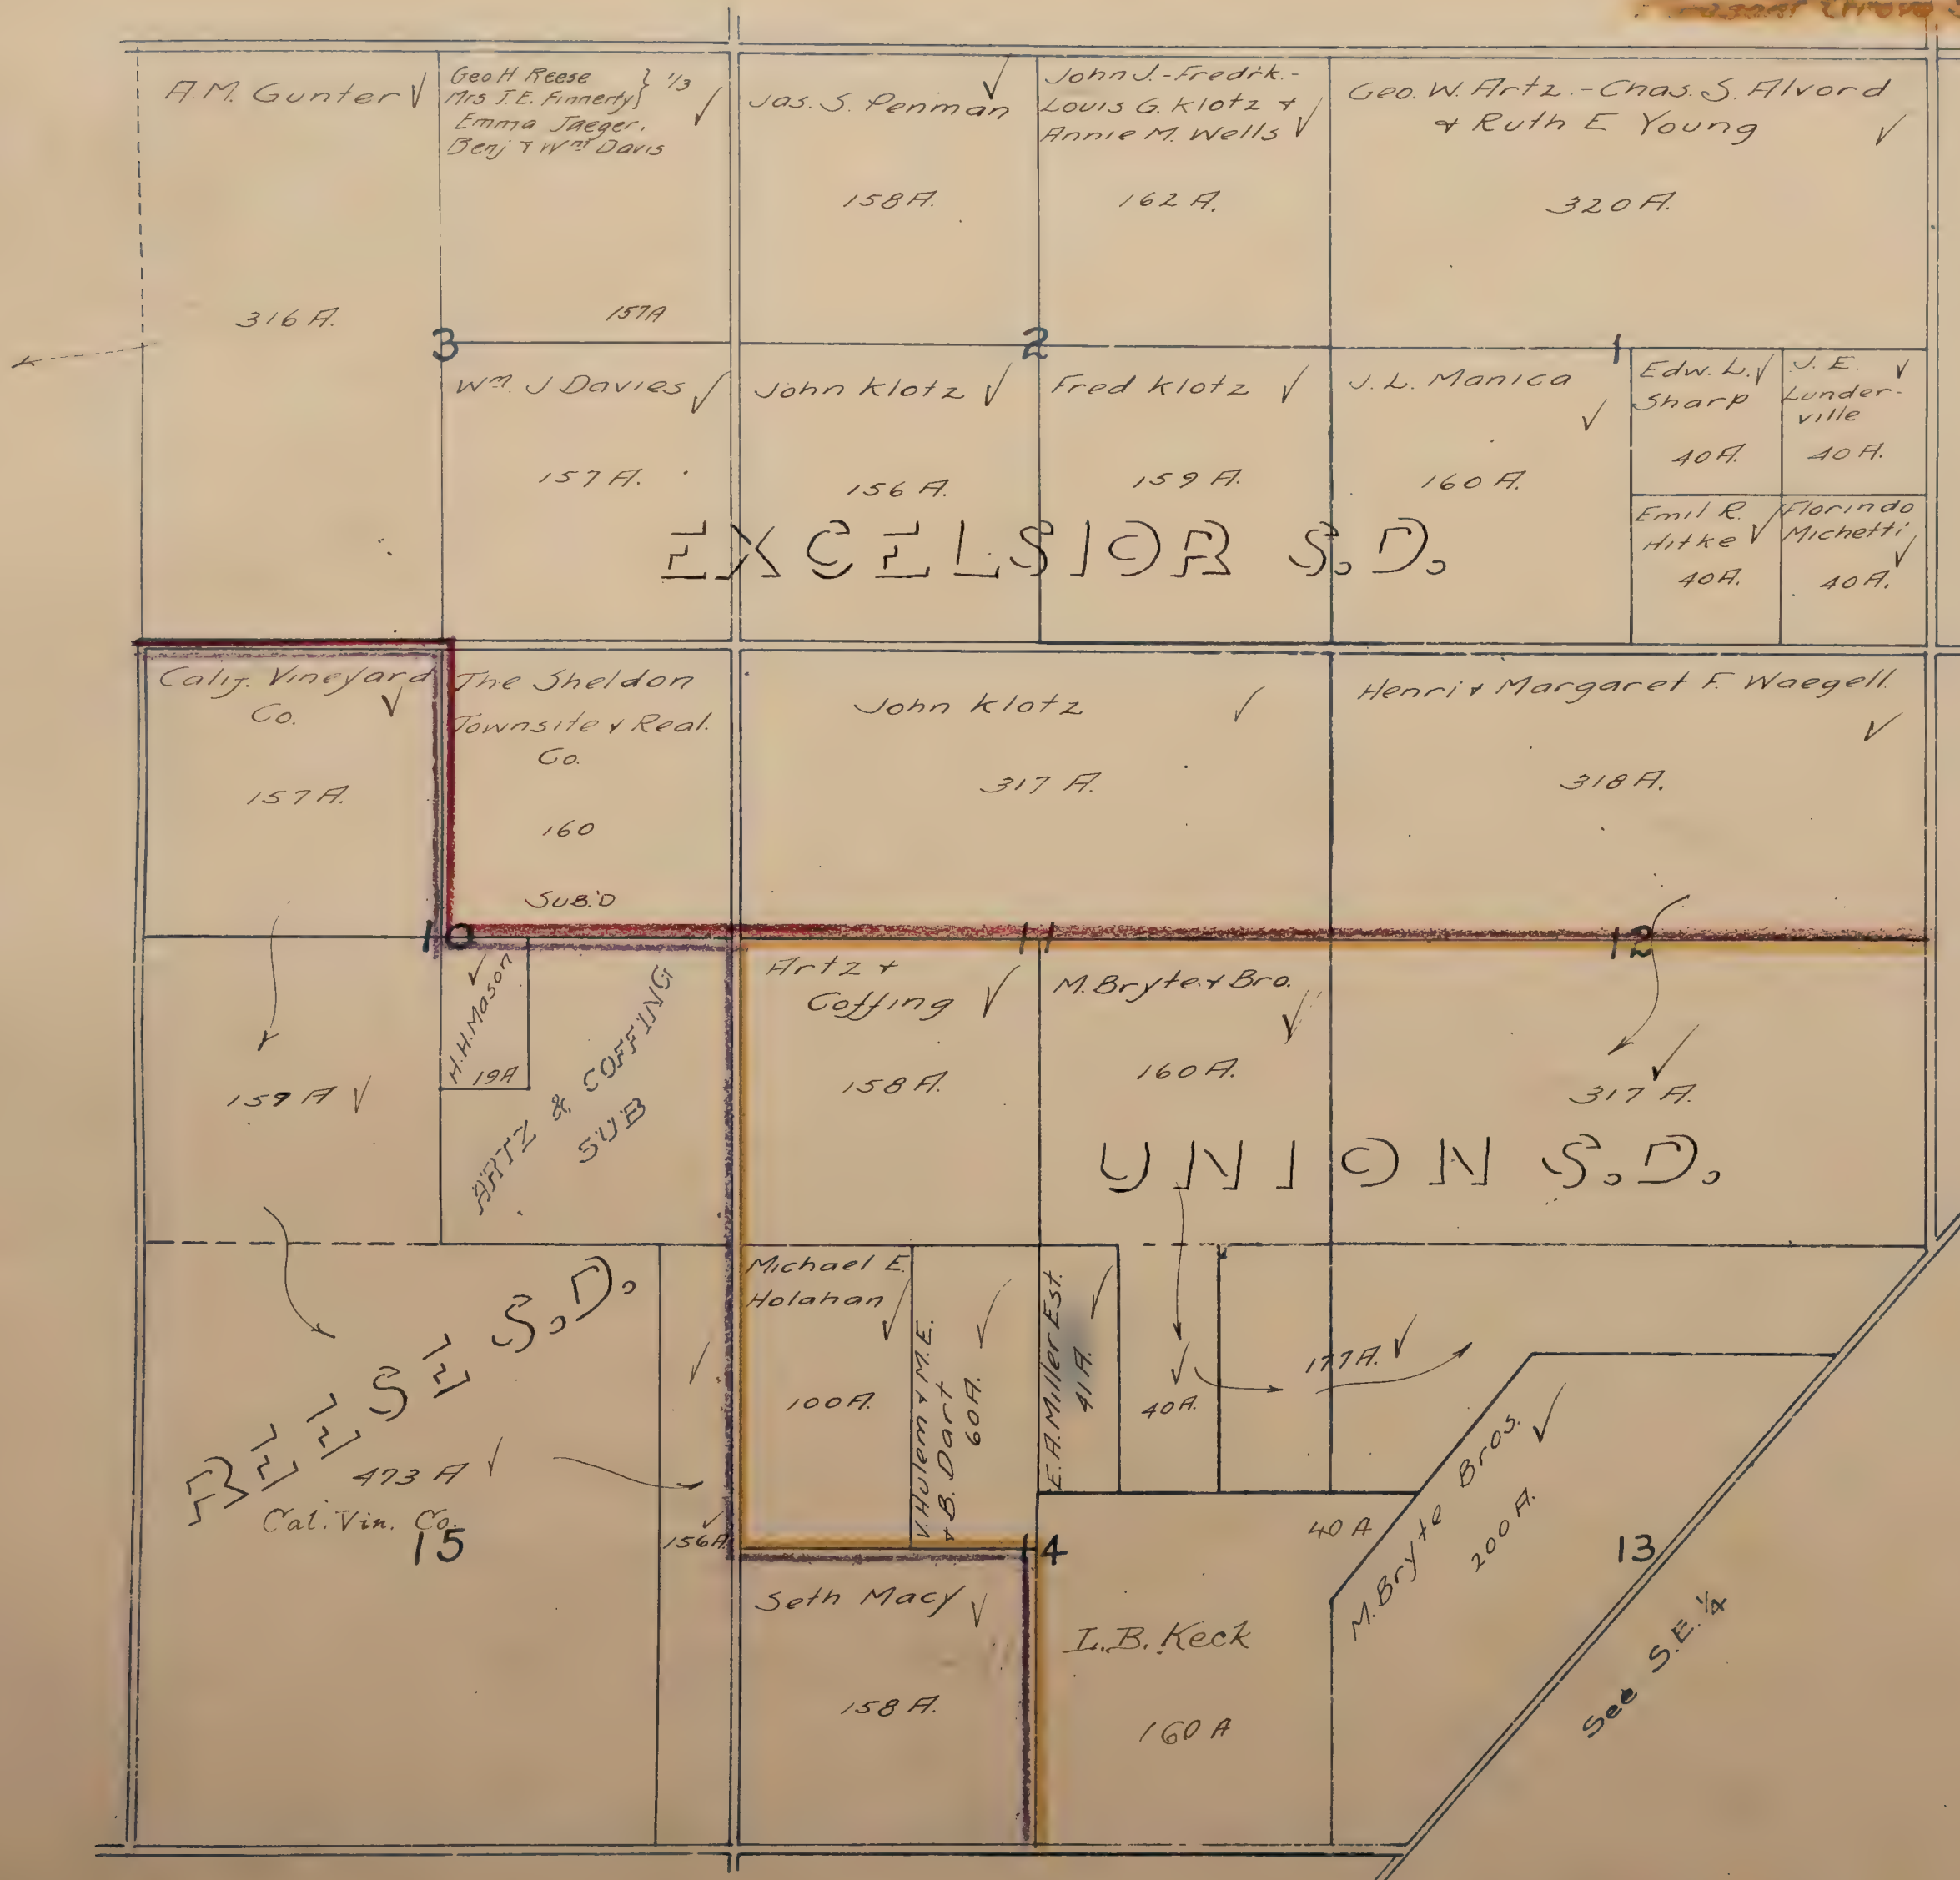 A.M. Gunter
316 A.
Geo H Reese
Mrs J.E. Finnerty } 1/3
Emma Jaeger.
Benj & Wm Davis
157A
Jas. S. Penman
158 A.
John J.-Fredrk.-
Louis G. Klotz &
Annie M. Wells
162 A.
Geo. W. Artz.-Chas. S. Alvord
& Ruth E Young
320 A.
3
2
1
Wm. J Davies
157 A.
John Klotz
156 A.
Fred Klotz
159 A.
J. L. Manica
160 A.
Edw. L.
Sharp
40 A.
J. E.
Lunder-
ville
40 A.
Emil R.
Hitke
40 A.
Florindo
Michetti
40 A.
EXCELSIOR S.D.
Calif. Vineyard
Co.
157 A.
The Sheldon
Townsite & Real.
Co.
160
SUB'D
John Klotz
317 A.
Henri & Margaret F. Waegell
318 A.
10
11
12
159 A
H.H. Mason
19A
ARTZ & COFFING
SUB
Artz &
Coffing
158 A.
M. Bryte & Bro.
160 A.
317 A.
UNION S.D.
REESE S.D.
473 A
Cal. Vin. Co.
15
156A
Michael E.
Holahan
100 A.
& B. Dart
60 A.
E. A. Miller Est.
41 A.
40 A.
177 A.
14
40 A
M. Bryte Bros.
200 A.
13
See S.E. 1/4
Seth Macy
158 A.
L. B. Keck
160 A